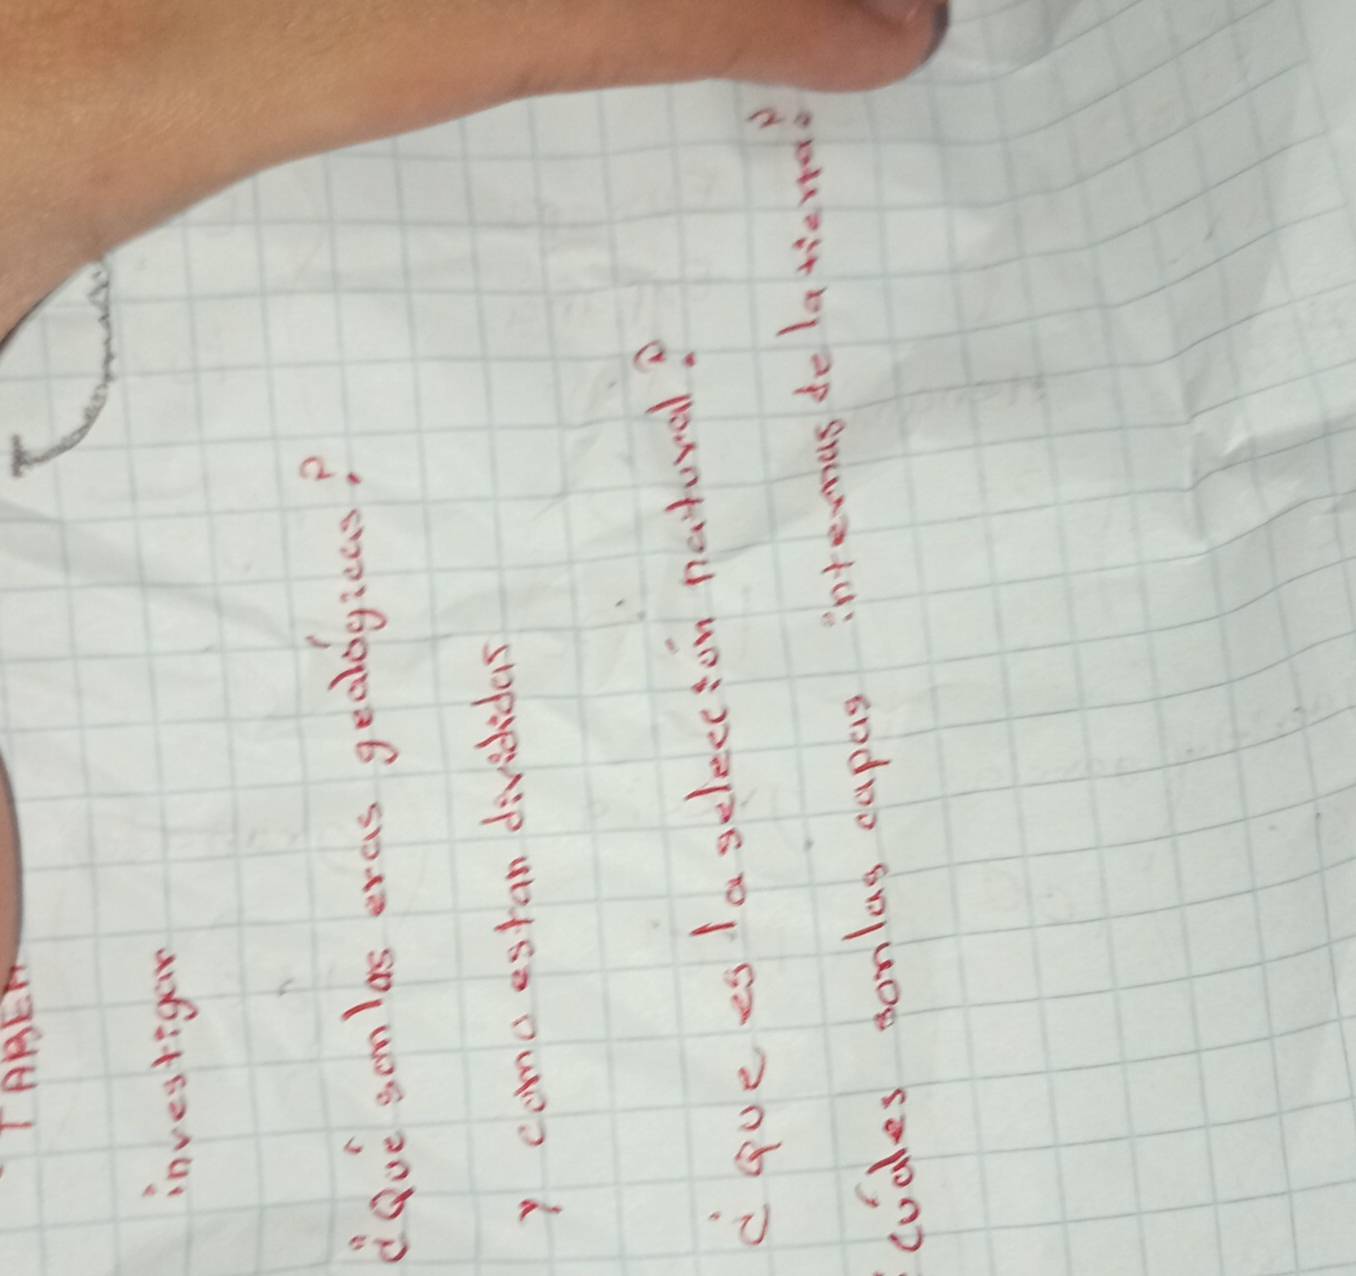 TAREA
investigar
¿Qué son las eras geológicas?
y como estan divididas
¿que es la selección natural?
cuáles son las capas internas de la tierra?